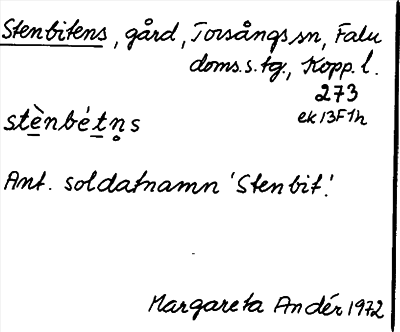 Stenbitens, gård, Torsångs sn, Falu
doms. s. tg., Kopp. l.
273
ek 13F1h
stènbétn̥s
Ant. soldatnamn 'Stenbit'.
Margareta Andér 1972